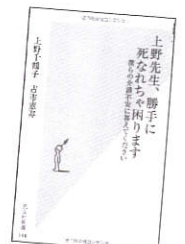 上野先生、勝手に
死なれちゃ困ります
僕らの介護不安に答えてください
上野千鶴子 古市憲寿
光文社新書